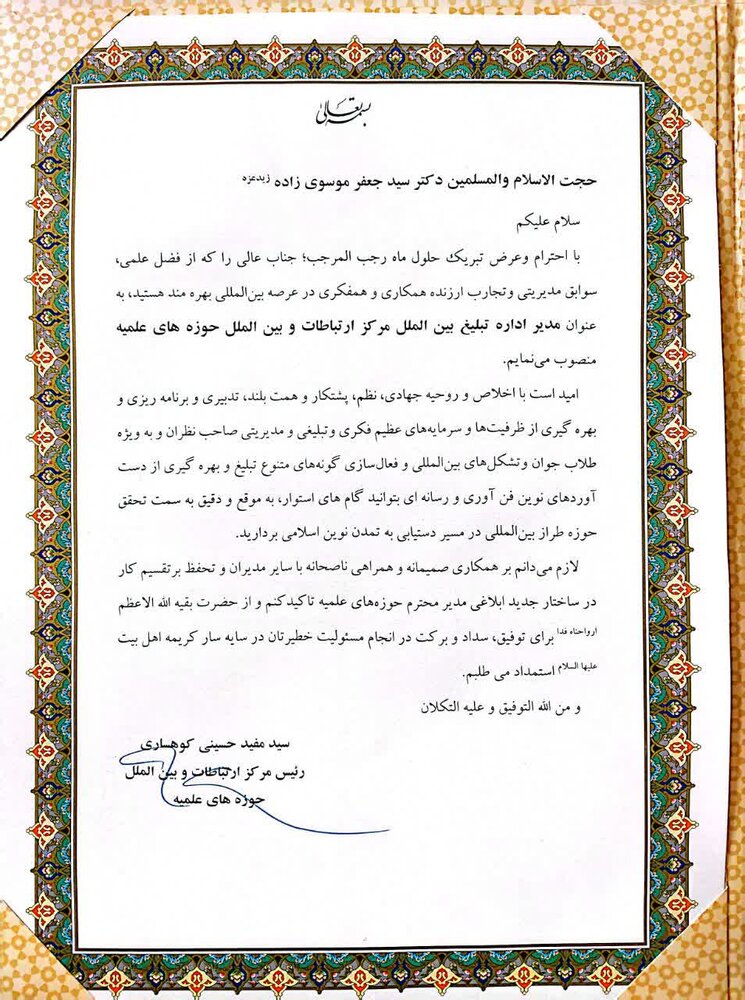 بسمه تعالی
حجت الاسلام والمسلمین دکتر سید جعفر موسوی زاده زیدعزه
سلام علیکم
با احترام وعرض تبریک حلول ماه رجب المرجب؛ جناب عالی را که از فضل علمی،
سوابق مدیریتی وتجارب ارزنده همکاری و همفکری در عرصه بین‌المللی بهره مند هستید، به
عنوان مدیر اداره تبلیغ بین الملل مرکز ارتباطات و بین الملل حوزه های علمیه
منصوب می‌نمایم.
امید است با اخلاص و روحیه جهادی، نظم، پشتکار و همت بلند، تدبیری و برنامه ریزی و
بهره گیری از ظرفیت‌ها و سرمایه‌های عظیم فکری وتبلیغی و مدیریتی صاحب نظران و به ویژه
طلاب جوان وتشکل‌های بین‌المللی و فعال‌سازی گونه‌های متنوع تبلیغ و بهره گیری از دست
آوردهای نوین فن آوری و رسانه ای بتوانید گام های استوار، به موقع و دقیق به سمت تحقق
حوزه طراز بین‌المللی در مسیر دستیابی به تمدن نوین اسلامی بردارید.
لازم می‌دانم بر همکاری صمیمانه و همراهی ناصحانه با سایر مدیران و تحفظ برتقسیم کار
در ساختار جدید ابلاغی مدیر محترم حوزه‌های علمیه تاکیدکنم و از حضرت بقیه الله الاعظم
ارواحناه فدا برای توفیق، سداد و برکت در انجام مسئولیت خطیرتان در سایه سار کریمه اهل بیت
علیها السلام استمداد می طلبم.
و من الله التوفیق و علیه التکلان
سید مفید حسینی کوهساری
رئیس مرکز ارتباطات و بین الملل
حوزه های علمیه